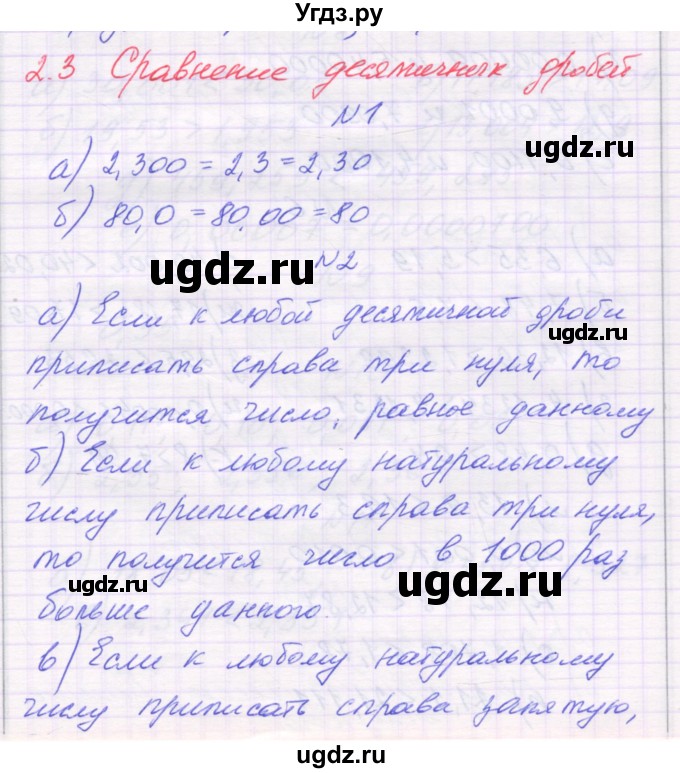 Угдз.ру
2.3 Сравнение десятичных дробей
N1
ugdz.ru
а) 2,300 = 2,3 = 2,30
б) 80,0 = 80,00 = 80
ugdz.ru
N2
а) Если к любой десятичной дроби
ugdz.ru
приписать справа три нуля, то
получится число, равное данному
б) Если к любому натуральному
числу приписать справа три нуля,
то получится число в 1000 раз
ugdz.ru
ugdz.ru
больше данного.
в) Если к любому натуральному
числу приписать справа запятую,
ugdz.ru